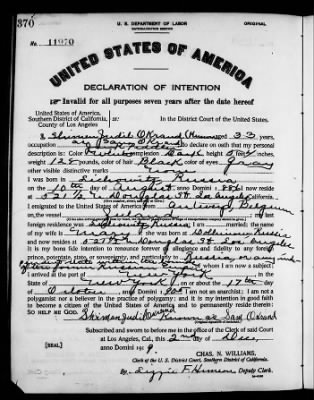 370
U. S. DEPARTMENT OF LABOR
NATURALIZATION SERVICE
ORIGINAL
No. 11970
UNITED STATES OF AMERICA
DECLARATION OF INTENTION
Invalid for all purposes seven years after the date hereof
United States of America,
Southern District of California,
County of Los Angeles
In the District Court of the United States.
I, aged 33 years,
occupation do declare on oath that my personal
description is: Color White, complexion Dark, height 5 feet inches,
weight 128 pounds, color of hair Black, color of eyes Gray
other visible distinctive marks None
I was born in Russia
on the 10th day of August, anno Domini 1886; I now reside
at 521 1/2 S. Douglas St. Los Angeles
I emigrated to the United States of America from Antwerp, Belgium
on the vessel Zeeland; my last
foreign residence was Russia; I am married; the name
of my wife is Mary; she was born at Russia
and now resides at 521 1/2 Douglas St. Los Angeles
It is my bona fide intention to renounce forever all allegiance and fidelity to any foreign
prince, potentate, state, or sovereignty, and particularly to Russia, or any independent state within the bounds of the former Russian Empire, of whom I am now a subject;
I arrived at the port of New York, in the
State of New York, on or about the 17th day
of October, anno Domini; I am not an anarchist; I am not a
polygamist nor a believer in the practice of polygamy; and it is my intention in good faith
to become a citizen of the United States of America and to permanently reside therein:
SO HELP ME GOD.
Known as Sam Okrand
Subscribed and sworn to before me in the office of the Clerk of said Court
at Los Angeles, Cal., this 2nd day of Dec.,
anno Domini 1919.
[SEAL]
CHAS. N. WILLIAMS,
Clerk of the U. S. District Court, Southern District of California.
By Deputy Clerk.